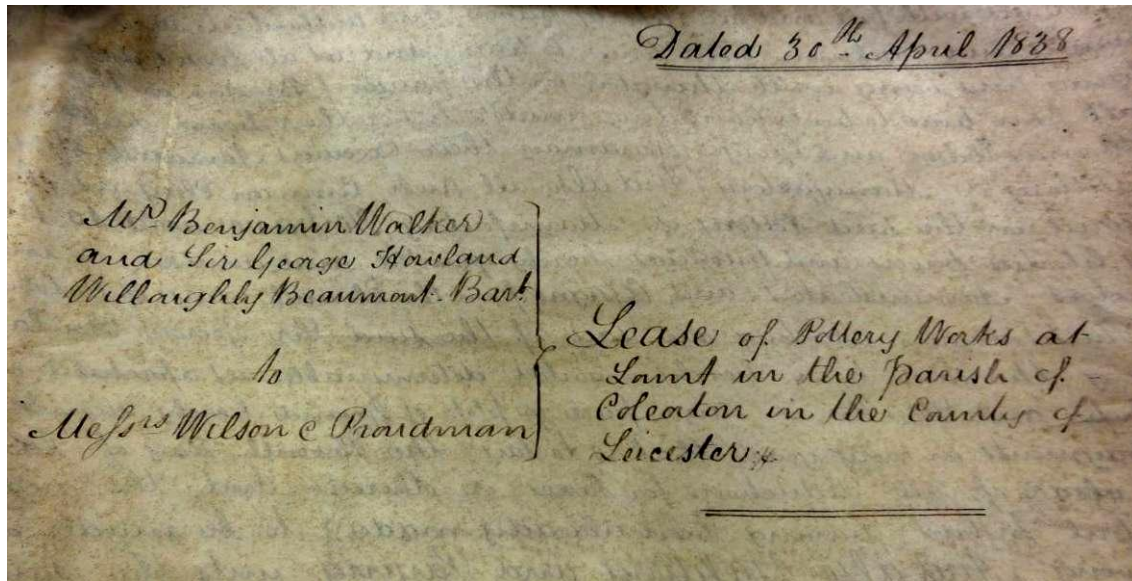 Dated 30th April 1838
Mr. Benjamin Walker
and Sir George Howland
Willoughby Beaumont Bart.
to
Messrs Wilson & Proudman
Lease of Pottery Works at
Lount in the Parish of
Coleorton in the County of
Leicester